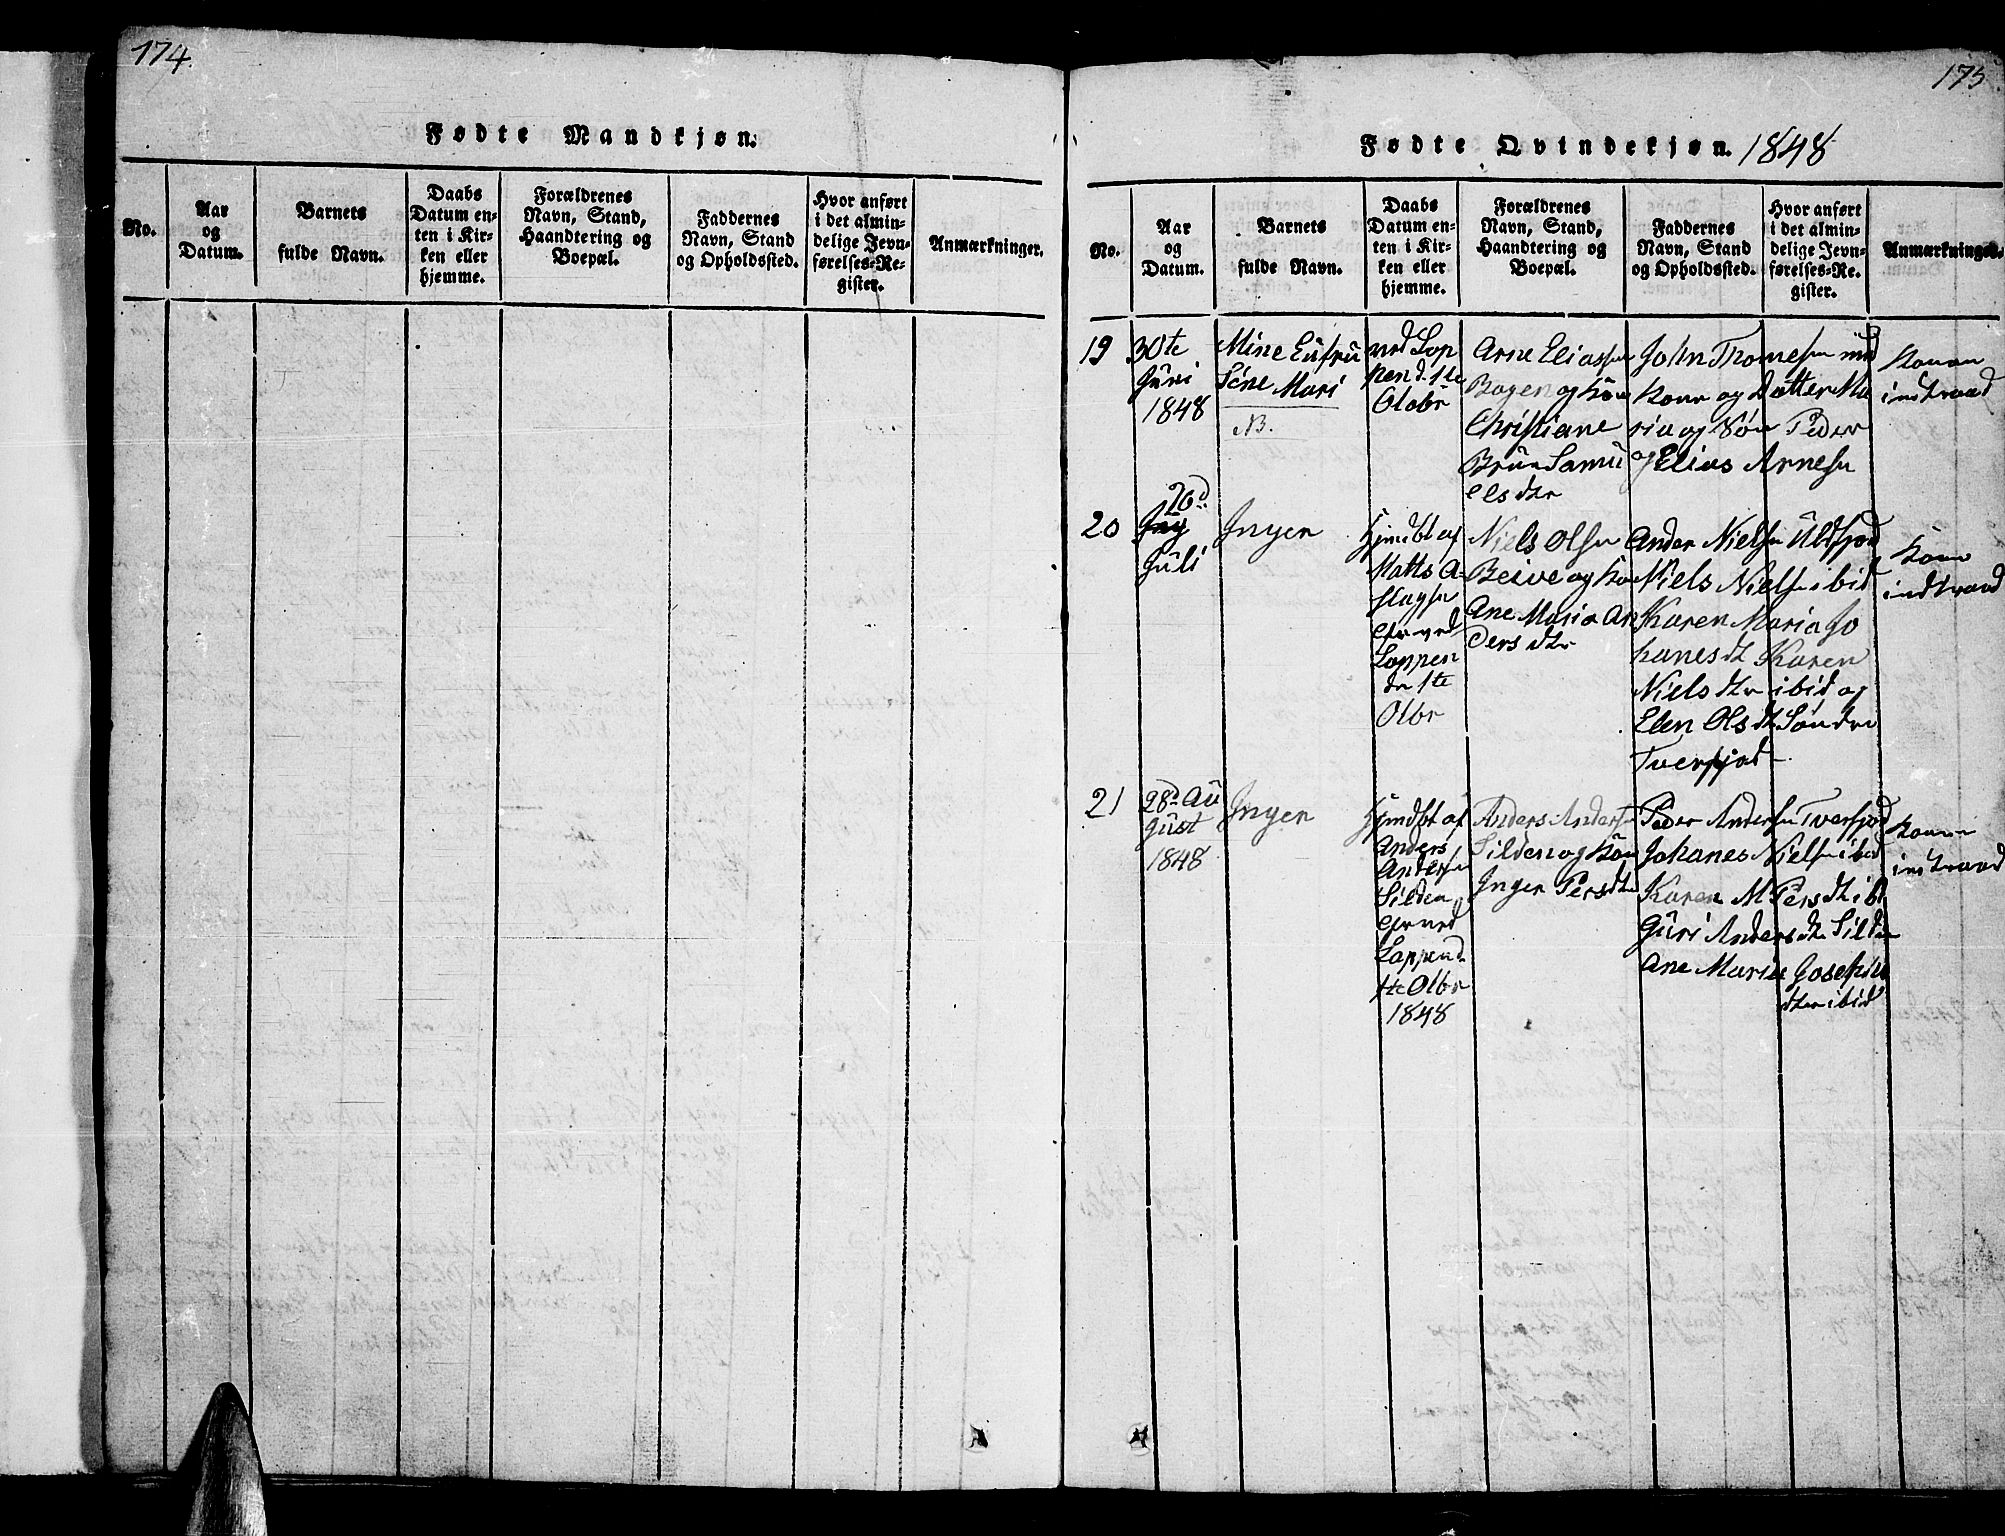 174.
Fødte Mandkjøn.
No.
Aar
og
Datum.
Barnets
fulde Navn.
Daabs
Datum en-
ten i Kir-
ken eller
hjemme.
Forældrenes
Navn, Stand,
Haandtering og
Boepæl.
Faddernes
Navn, Stand
og Opholdssted.
Hvor anført
i det almin-
delige Jevn-
førelses-Re-
gister.
Anmærkninger.
175
Fødte Qvindekjøn. 1848
No.
Aar
og
Datum.
Barnets
fulde Navn.
Daabs
Datum en-
ten i Kir-
ken eller
hjemme.
Forældrenes
Navn, Stand,
Haandtering og
Boepæl.
Faddernes
Navn, Stand
og Opholdssted.
Hvor anført
i det almin-
delige Jevn-
førelses-Re-
gister.
Anmærkninger.
19
30te
Juni
1848
Mine Eufru
Sine Mari
NB.
ved Lop
pen d. 1te
Otobr
Arne Eliassen
Bogen og Kon
Christiane
Brun Samu
elsdtr
John Thomesen med
Kone og Datter Ma
ria og Søn Peder
og Elias Arnesen
Konen
indtraad
20
26d
Juli
Inger
Hjmdbt af
Matts A-
slagsen
Cfr ved
Loppen
dn 1te
Otbr
Niels Olsen
Beive og Kon
Ane Maria An
dersdtr
Ander Nielsen Ulsfjord
Niels Nielsen ibid
Karen Maria Jo
hanesdt Karen
Nielsdtr ibid og
Elen Olsdtr Søndre
Tverfjod
Kone
indtraad
21
28d Au
gust
1848
Inger
Hjmdbt af
Anders
Andersen
Silden
Cfr ved
Loppen d.
1te Otbr
1848
Anders Andersen
Silden og Kon
Inger Persdtr
Peder Andersen Tverfjod
Johanes Nielsen ibid
Karen M Persdt ib
Guri Andersdtr Silden
Ane Maria Josephin
dtr ibid
Konen
indtraad